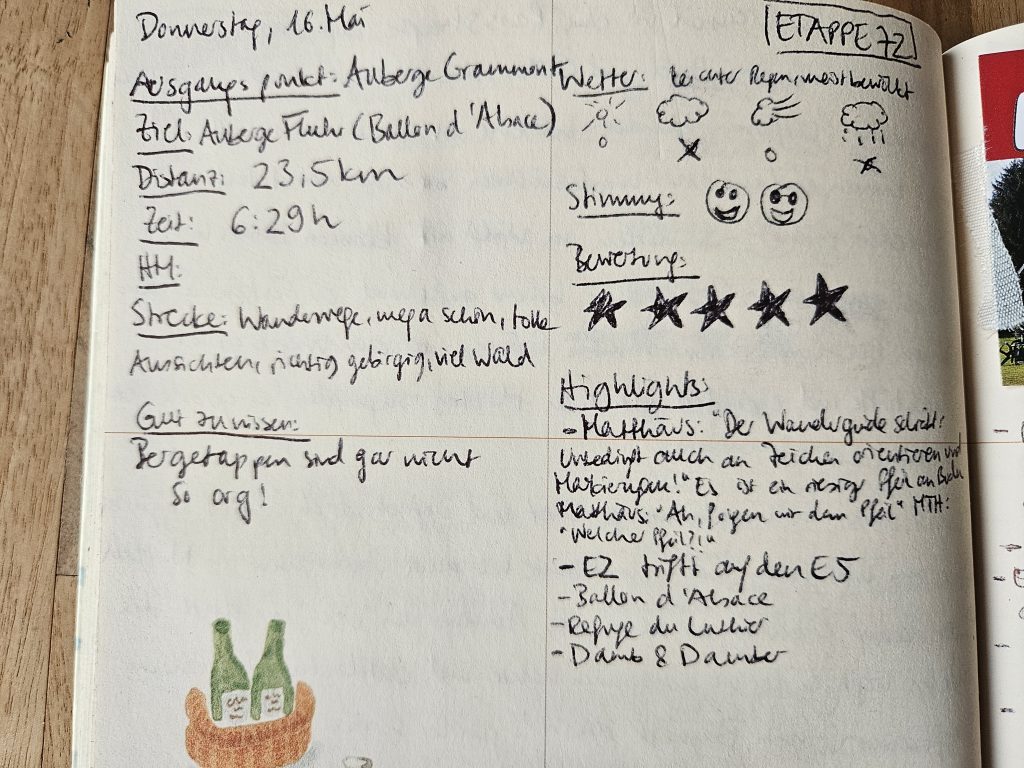 Donnerstag, 16. Mai
ETAPPE 72
Ausgangspunkt: Auberge Grammont
Ziel: Auberge Fluhr (Ballon d'Alsace)
Distanz: 23,5 km
Zeit: 6:29 h
HM:
Strecke: Wanderwege, mega schön, tolle
Aussichten, richtig gebirgig, viel Wald
Gut zu wissen:
Bergetappen sind gar nicht
so org!
Wetter: leichter Regen, meist bewölkt
Stimmung:
Bewertung:
Highlights:
- Matthäus: "Der Wanderguide schreibt:
Unbedingt auch an Zeichen orientieren und
Markierungen!" Es ist ein riesiger Pfeil am Boden
Matthäus: "Ah, folgen wir dem Pfeil" MTH:
"Welcher Pfeil?!"
- E2 trifft auf den E5
- Ballon d'Alsace
- Refuge du
- Damb & Damber